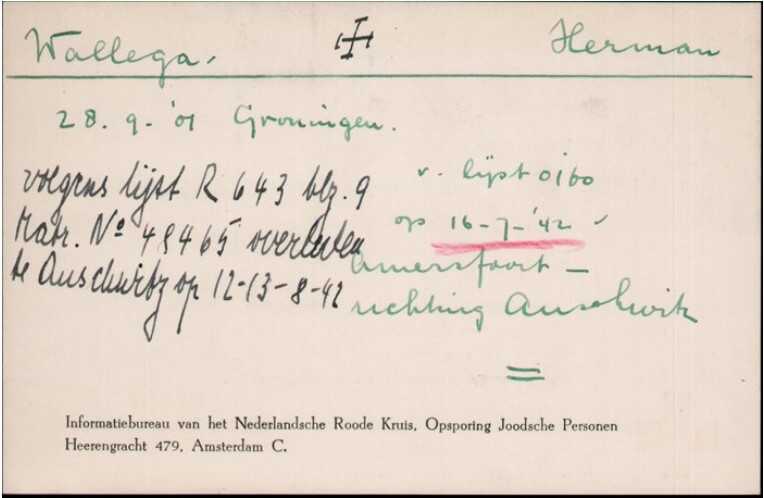 Wallega. Herman
28. 9. '01 Groningen.
volgens lijst R 643 blz. 9
Matr. Nº 48465 overleden
te Auschwitz op 12-13-8-42
v. lijst 0160
op 16-7-'42
Amersfoort -
richting Auschwitz
Informatiebureau van het Nederlandsche Roode Kruis, Opsporing Joodsche Personen
Heerengracht 479, Amsterdam C.